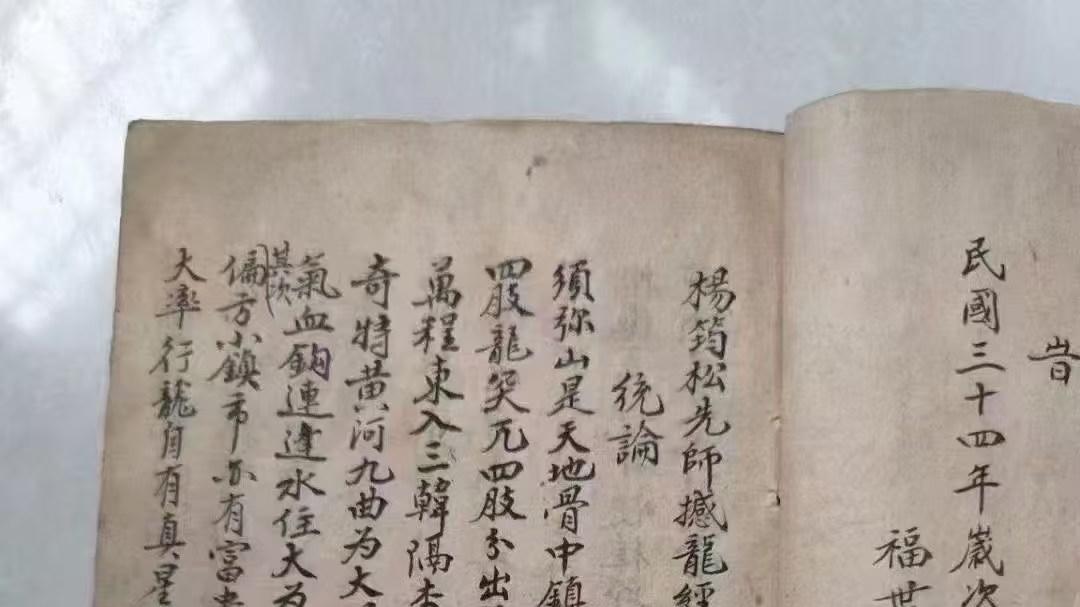 旹
民國三十四年嵗次
福世
楊筠松先師撼龍經
統論
須弥山是天地骨中鎮
四肢龍突兀四肢分出
萬程東入三韓隔杳
奇特黄河九曲为大
氣血鈎連逢水住大为
其次
偏方小鎮市亦有富
大率行龍自有真星